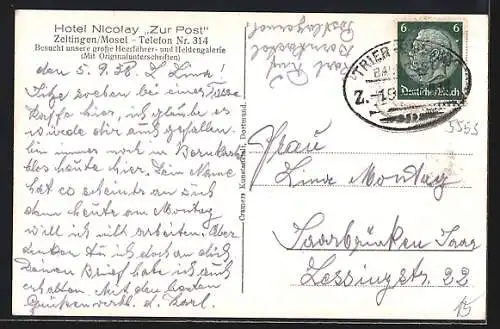 Hotel Nicolay „Zur Post"
Zeltingen/Mosel - Telefon Nr. 314
Besucht unsere große Heerführer- und Heldengalerie
(Mit Originalunterschriften)
den 5. 9. 38. L. Lina!
Sitze soeben bei einer Tasse
Kaffe hier, ich glaube es
würde dir auch gefallen.
Bin immer noch in Bernkastel
hier. Dein Name
hat es scheints an sich
denn heute am Montag
will ich nicht arbeiten. Aber
denken tu ich doch an dich
Deinen Brief habe ich auch
erhalten. Mit den besten
d. Karl.
Cramers Kunstanstalt, Dortmund.
Karl
Bernkastel
Postlagernd
6 6
Deutsches Reich
TRIER
Z.
5555
Frau
Lina Montag
Saarbrücken Saar
Lessingstr. 22